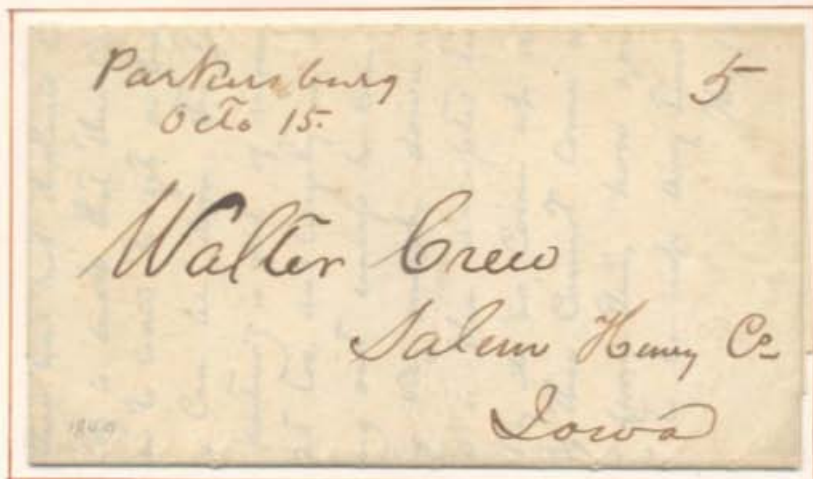 Parkersburg
Octo 15.
5
Walter Crew
Salem Henry Co
Iowa